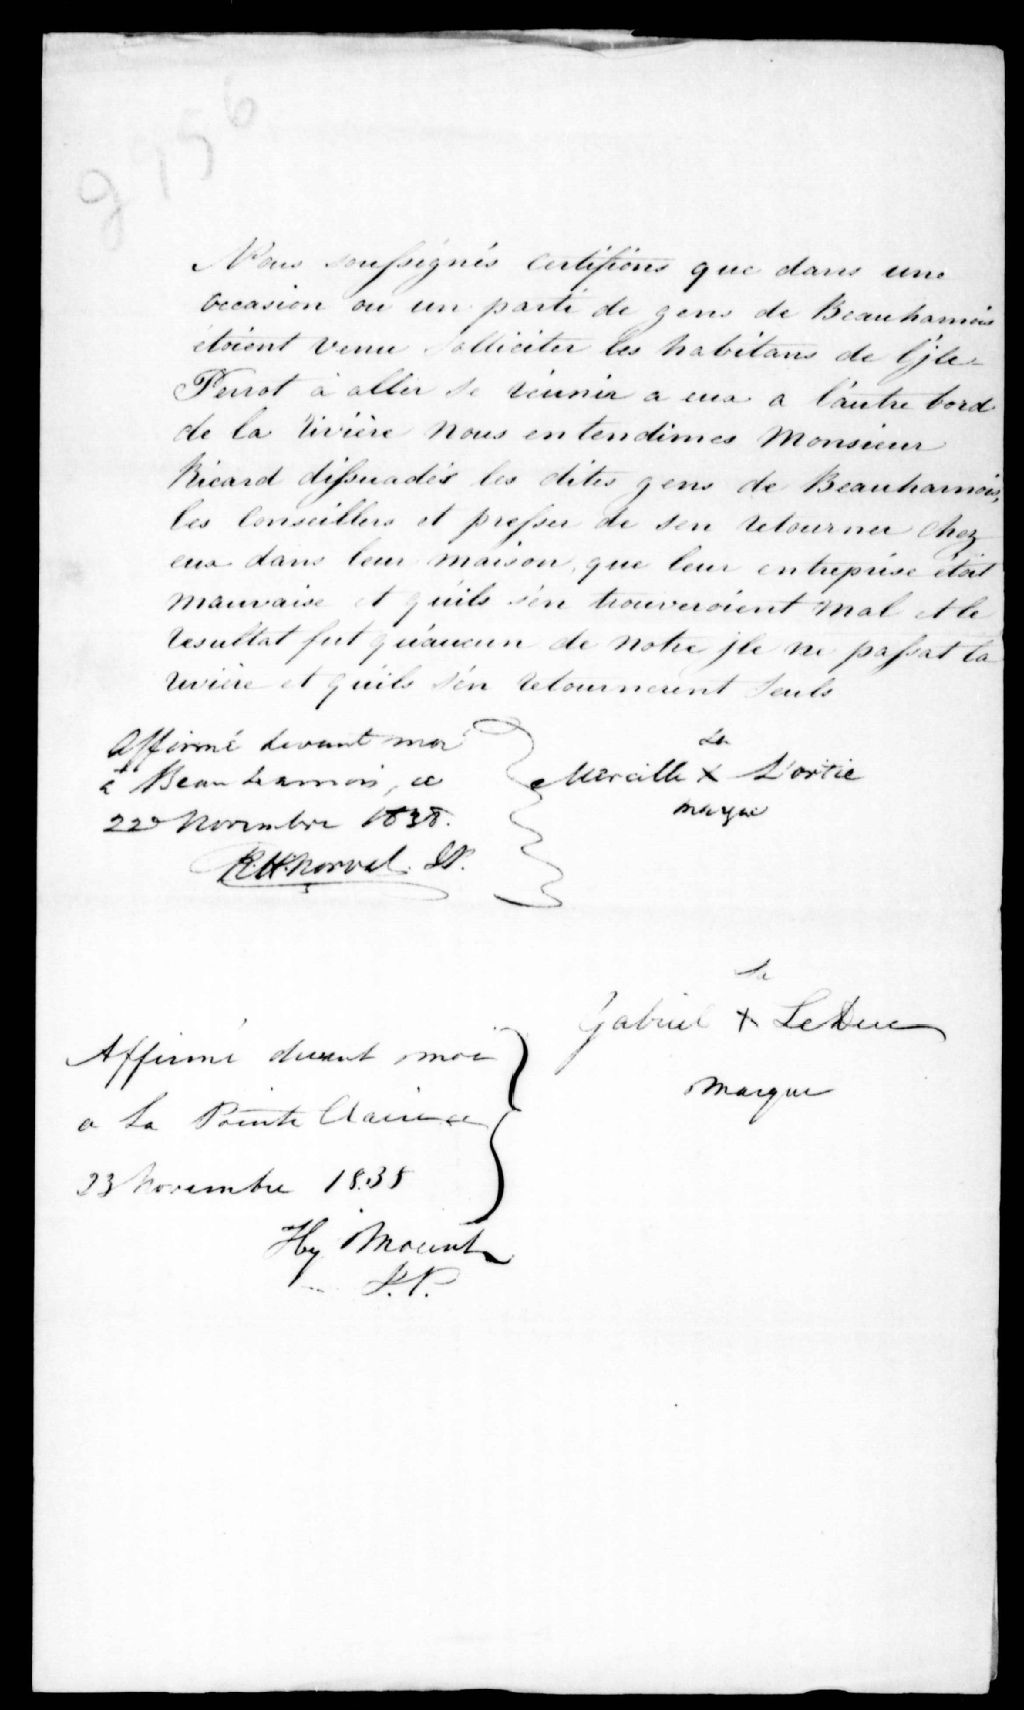 9956
Nous soussignés certifions que dans une
occasion ou un parti de gens de Beauharnois
étoient venu solliciter les habitans de l'jle
Perrot à aller se réunir a eux a l'autre bord
de la rivière nous entendimes Monsieur
Ricard dissuadér les dites gens de Beauharnois,
les conseillers et presser de s'en retourner chez
eux dans leur maison, que leur entreprise étoit
mauvaise et qu'ils s'én trouveroient mal et le
resultat fut qu'aucun de notre jle ne passat la
rivière et qu'ils s'én retournerent seuls
Affirmé devant moi
à Beauharnois, ce
22e Novembre 1838.
R.H. Norval J.P.
La
Mercille X L'ortie
marque
Sa
Gabriel + LeDuc
Marque
Affirmé devant moi
a La Pointe Claire ce
23 Novembre 1838
Hy Mount
J.P.